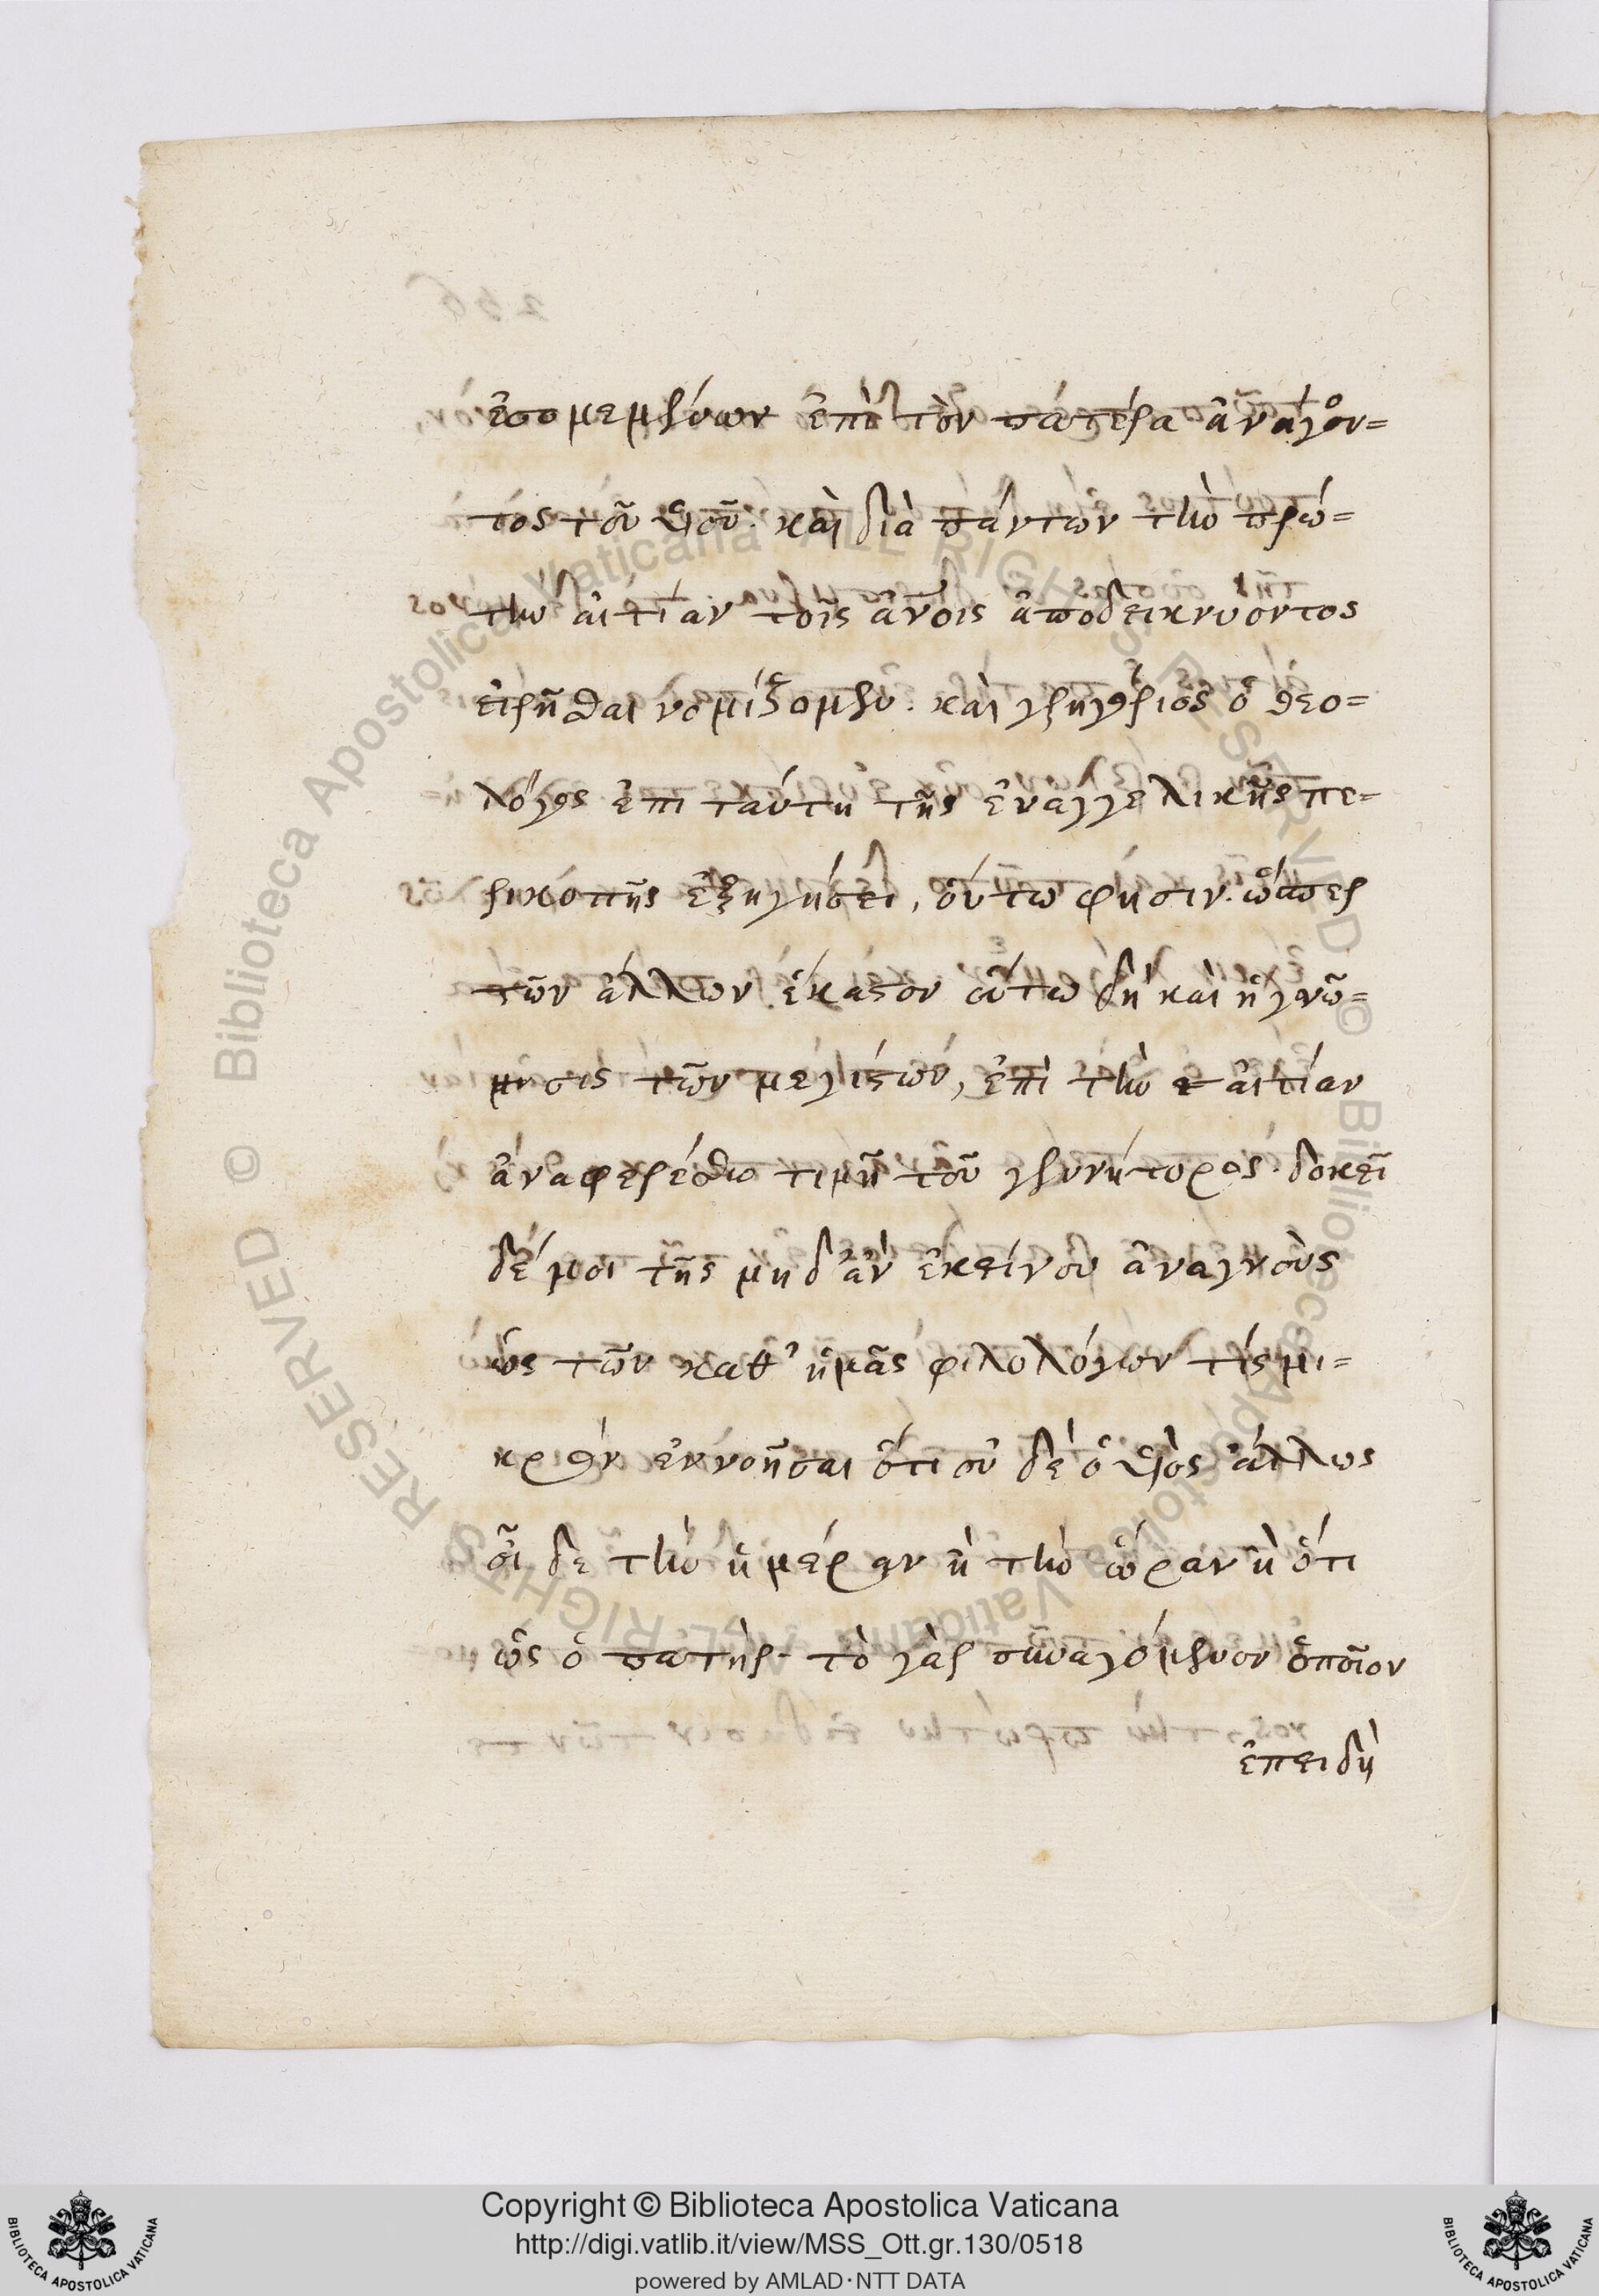 ἐσομεμένων ἐπὶ τὸν πατέρα ἀνάγον=
τος τοῦ υἱοῦ. καὶ διὰ πάντων τὴν πρώ=
την αἰτίαν τοῖς ἀνοις ἀποδεικνύοντος
εἰρῆσθαι νομίζομεν. καὶ γρηγόριος ὁ θεο=
λόγος ἐπι ταύτη τῆς εὐαγγελικῆς πε=
ρικοπῆς ἐξηγήσει, οὕτω φησιν. ὥσπερ
τῶν ἄλλων ἕκαστον οὕτω δὴ καὶ ἡ γνῶ=
σις τῶν μεγίστων, ἐπὶ τὴν αἰτίαν
ἀναφερέσθω τιμῇ τοῦ γεννήτορος. δοκεῖ
δέ μοι τῆς μηδ' ἂν ἐκείνου ἀναγνοὺς
ὡς τῶν καθ' ἡμᾶς φιλολόγων τίς μι=
κρὸν ἐννοῆσαι ὅτι οὐ δὲ ὁ υἱὸς ἄλλως
οἶδε τὴν ἡμέραν ἢ τὴν ὥραν ἢ ὅτι
ὡς ὁ πατήρ. τὸ γὰρ συναγόμενον ὁποῖον
ἐπειδὴ
Copyright © Biblioteca Apostolica Vaticana
http://digi.vatlib.it/view/MSS_Ott.gr.130/0518
powered by AMLAD·NTT DATA